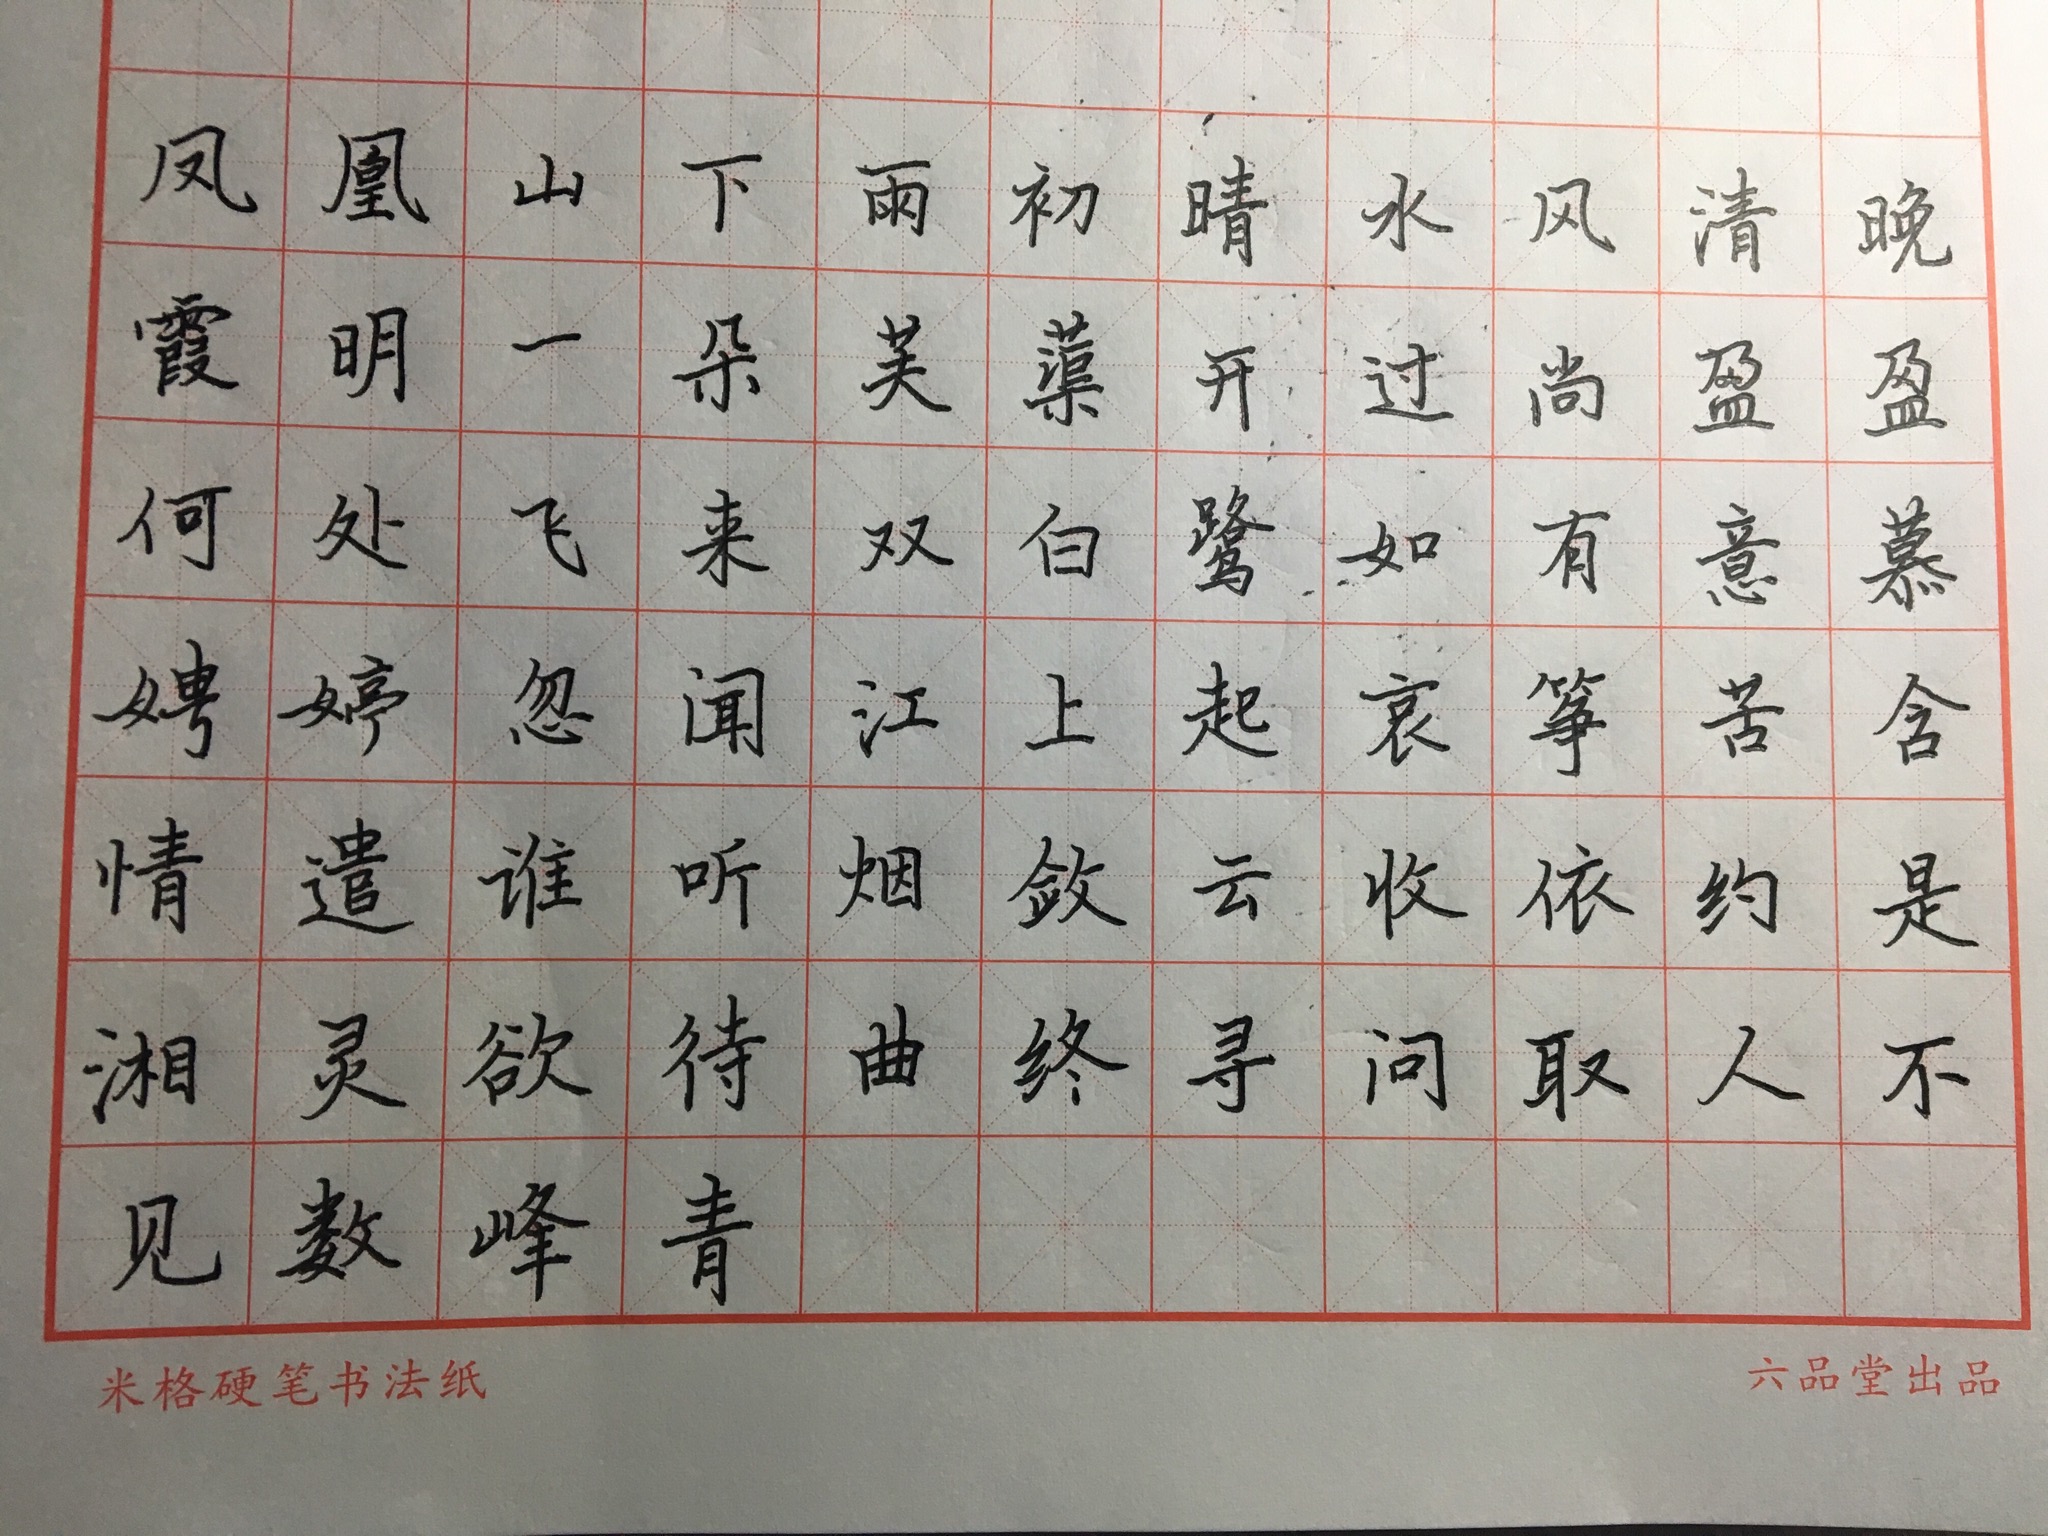 凤凰山下雨初晴水风清晚
霞明一朵芙蕖开过尚盈盈
何处飞来双白鹭如有意慕
娉婷忽闻江上起哀筝苦含
情遣谁听烟敛云收依约是
湘灵欲待曲终寻问取人不
见数峰青
米格硬笔书法纸
六品堂出品